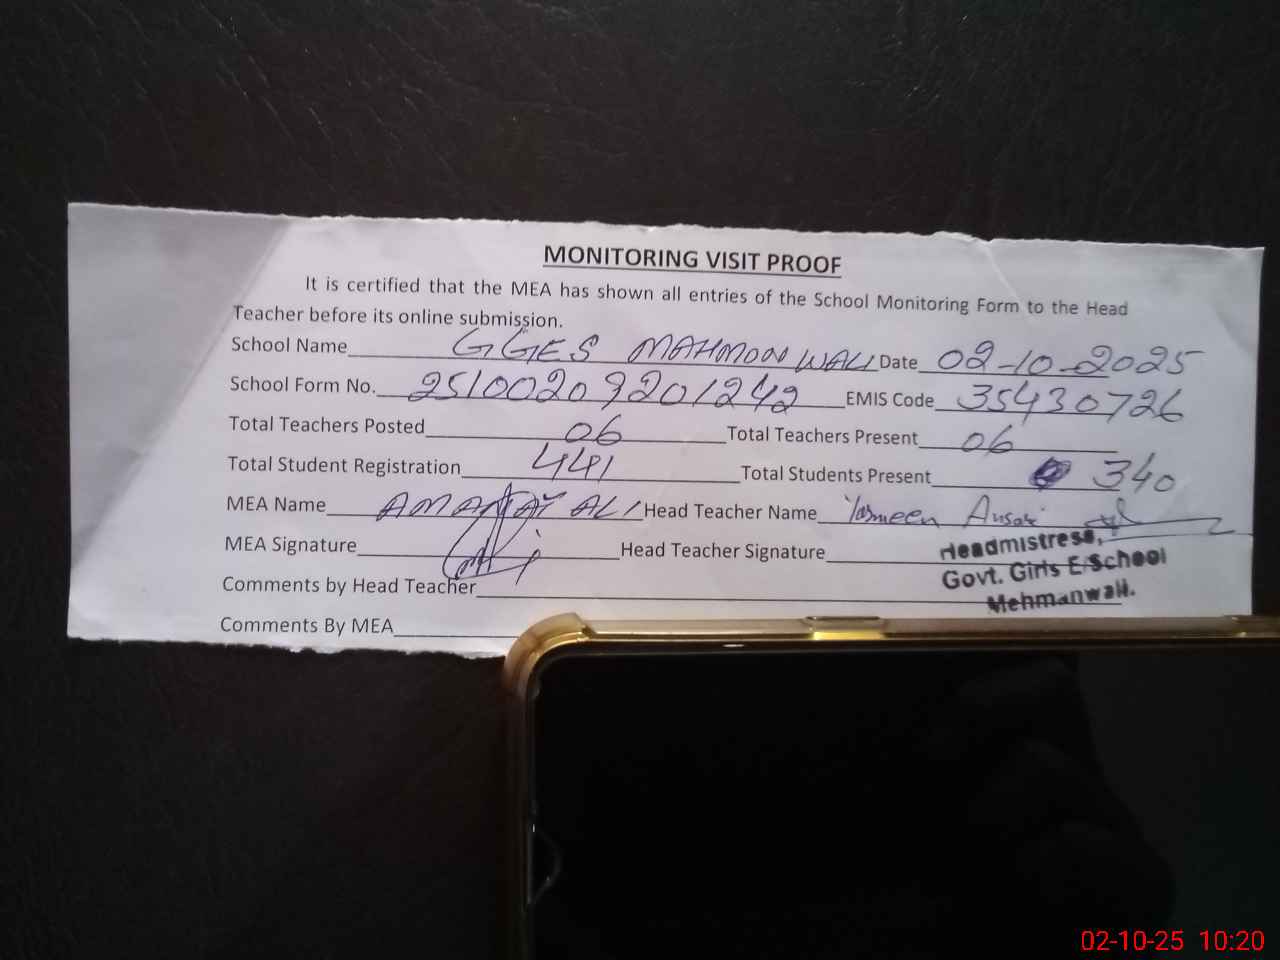 MONITORING VISIT PROOF
It is certified that the MEA has shown all entries of the School Monitoring Form to the Head
Teacher before its online submission.
School Name GGES MAHMON WALI Date 02-10-2025
School Form No. 25100209201242 EMIS Code 35430726
Total Teachers Posted 06 Total Teachers Present 06
Total Student Registration 441 Total Students Present 340
MEA Name AMANAT ALI Head Teacher Name Yasmeen Ansari
MEA Signature Head Teacher Signature
Headmistress,
Govt. Girls E/School
Mehmanwali.
Comments by Head Teacher
Comments By MEA
02-10-25 10:20